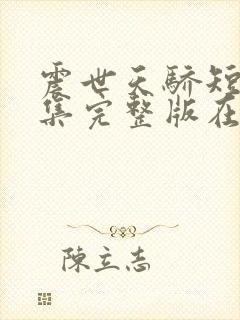 震世天骄短
集完整版在
陈立志